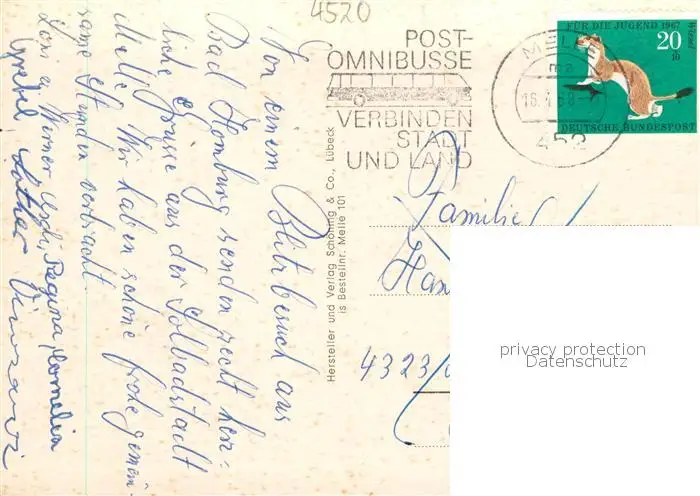 4520
POST-
OMNIBUSSE
VERBINDEN
STADT
UND LAND
MELLE
mz
16.
68-
452
FÜR DIE JUGEND 1967
20
10
DEUTSCHE BUNDESPOST
Von einem Blitzbesuch aus
Bad Homburg senden recht herz-
liche Grüsse aus der Solbadstadt
Melle. Wir haben schöne frohe gemein-
same Stunden verbracht.
Werner Regina, Cornelia
Gretel Lothar
Hersteller und Verlag Schöning & Co., Lübeck
is Bestellnr. Melle 101
Familie
Han
4323
privacy protection
Datenschutz